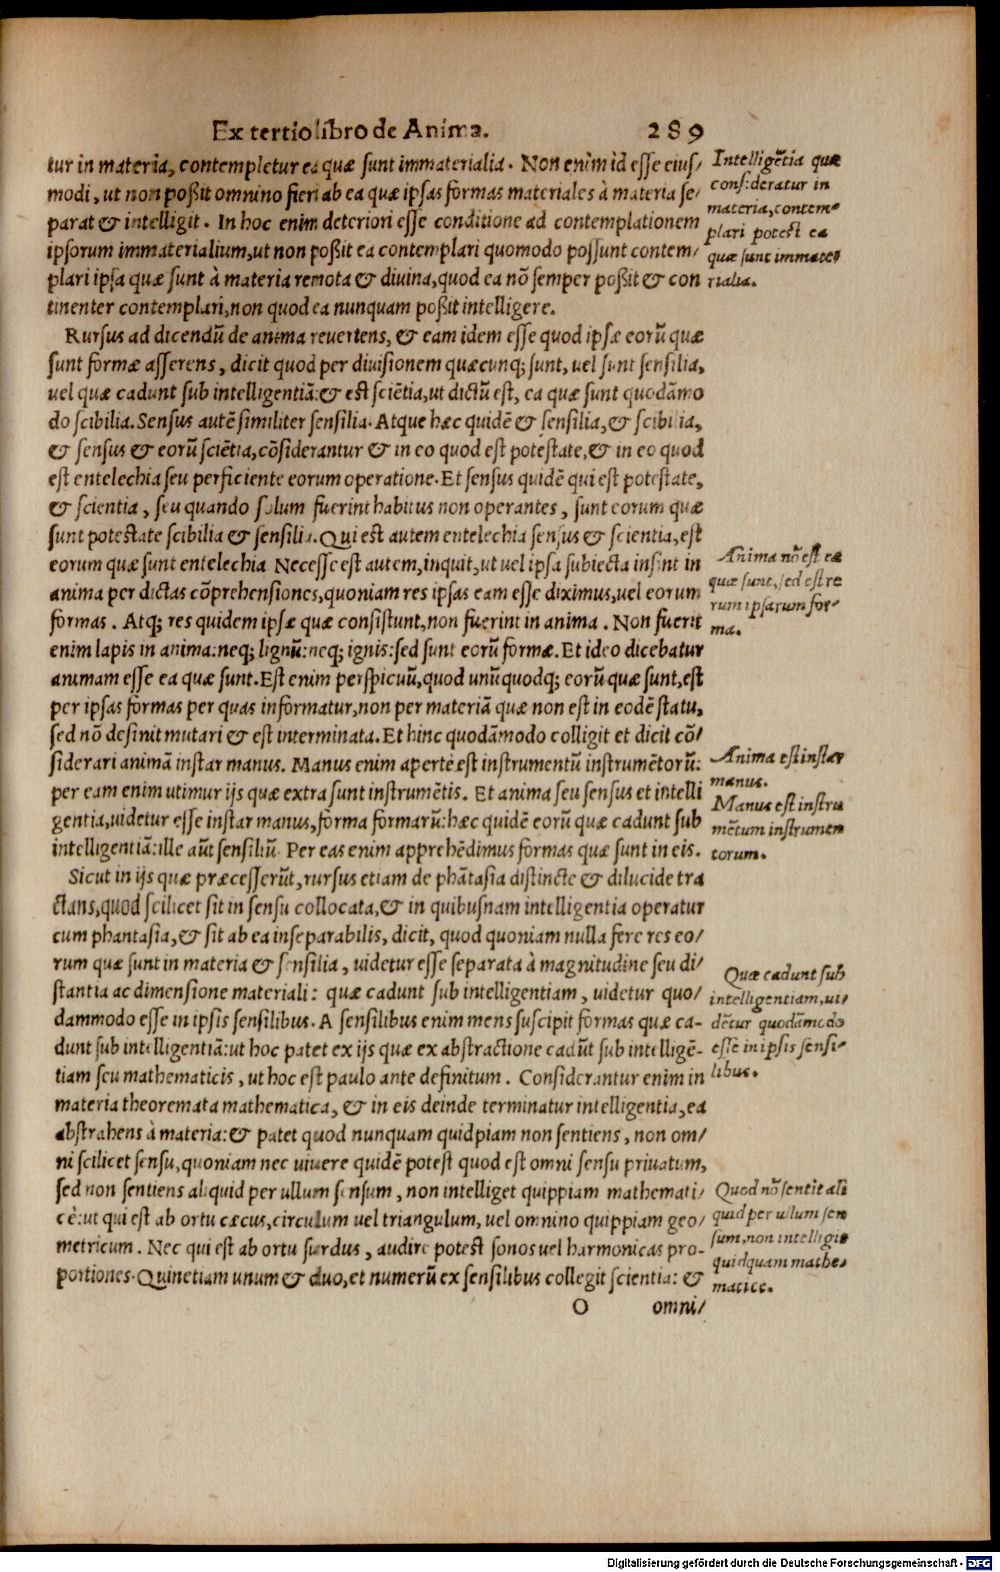 Ex tertio libro de Anima. 289
tur in materia, contempletur ea quæ sunt immaterialia. Non enim id esse eius/
modi, ut non poßit omnino fieri ab ea quæ ipsas formas materiales à materia se/
parat & intelligit. In hoc enim deteriori esse conditione ad contemplationem
ipsorum immaterialium, ut non poßit ea contemplari quomodo possunt contem/
plari ipsa quæ sunt à materia remota & divina, quod ea nõ semper poßit & con
tinenter contemplari, non quod ea nunquam poßit intelligere.
Intelligẽtia quæ
consideratur in
materia, contem-
plari potest ea
quæ sunt immate/
rialia.
Rursus ad dicendũ de anima revertens, & eam idem esse quod ipsæ eorũ quæ
sunt formæ asserens, dicit quod per divisionem quæcunq; sunt, vel sunt sensilia,
vel quæ cadunt sub intelligentiã: & est sciẽtia, ut dictũ est, ea quæ sunt quodãmo
do scibilia. Sensus autẽ similiter sensilia. Atque hæc quidẽ & sensilia, & scibilia,
& sensus & eorũ sciẽtia, cõsiderantur & in eo quod est potestate, & in eo quod
est entelechia seu perficiente eorum operatione. Et sensus quidẽ qui est potestate,
& scientia, seu quando solum fuerint habitus non operantes, sunt eorum quæ
sunt potestate scibilia & sensilia. Qui est autem entelechia sensus & scientia, est
eorum quæ sunt entelechia Necesse est autem, inquit, ut vel ipsa subiecta insint in
anima per dictas cõprehensiones, quoniam res ipsas eam esse diximus, vel eorum
formas. Atq; res quidem ipsæ quæ consistunt, non fuerint in anima. Non fuerit
enim lapis in anima: neq; lignũ: neq; ignis: sed sunt eorũ formæ. Et ideo dicebatur
animam esse ea quæ sunt. Est enim perspicuũ, quod unũquodq; eorũ quæ sunt, est
per ipsas formas per quas informatur, non per materiã quæ non est in eodẽ statu,
sed nõ desinit mutari & est interminata. Et hinc quodãmodo colligit et dicit cõ/
siderari animã instar manus. Manus enim apertè est instrumentũ instrumẽtorũ:
per eam enim utimur ijs quæ extra sunt instrumẽtis. Et anima seu sensus et intelli
gentia, uidetur esse instar manus, forma formarũ: hæc quidẽ eorũ quæ cadunt sub
intelligentiã: ille aũt sensiliũ. Per eas enim apprehẽdimus formas quæ sunt in eis.
Anima nõ est ea
quæ sunt, sed est re
rum ipsarum for-
ma.
Anima est instar
manus.
Manus est instru
mẽtum instrumen
torum.
Sicut in ijs quæ præcesserũt, rursus etiam de phãtasia distincte & dilucide tra
ctans, quod scilicet sit in sensu collocata, & in quibusnam intelligentia operatur
cum phantasia, & sit ab ea inseparabilis, dicit, quod quoniam nulla fere res eo/
rum quæ sunt in materia & sensilia, uidetur esse separata à magnitudine seu di/
stantia ac dimensione materiali: quæ cadunt sub intelligentiam, uidetur quo/
dammodo esse in ipsis sensilibus. A sensilibus enim mens suscipit formas quæ ca-
dunt sub intelligentiã: ut hoc patet ex ijs quæ ex abstractione cadũt sub intelligẽ-
tiam seu mathematicis, ut hoc est paulo ante definitum. Considerantur enim in
materia theoremata mathematica, & in eis deinde terminatur intelligentia, ea
abstrahens à materia: & patet quod nunquam quidpiam non sentiens, non om/
ni scilicet sensu, quoniam nec vivere quidẽ potest quod est omni sensu privatum,
sed non sentiens aliquid per ullum sensum, non intelliget quippiam mathemati/
cè: ut qui est ab ortu cæcus, circulum vel triangulum, vel omnino quippiam geo/
metricum. Nec qui est ab ortu surdus, audire potest sonos vel harmonicas pro-
portiones. Quinetiam unum & duo, et numerũ ex sensilibus collegit scientia: &
Quæ cadunt sub
intelligentiam, ui/
dẽtur quodãmodo
esse in ipsis sensi-
libus.
Quod nõ sentit ali
quid per ullum sen
sum, non intelligit
quidquam mathe-
maticè.
O omni/
Digitalisierung gefördert durch die Deutsche Forschungsgemeinschaft - DFG